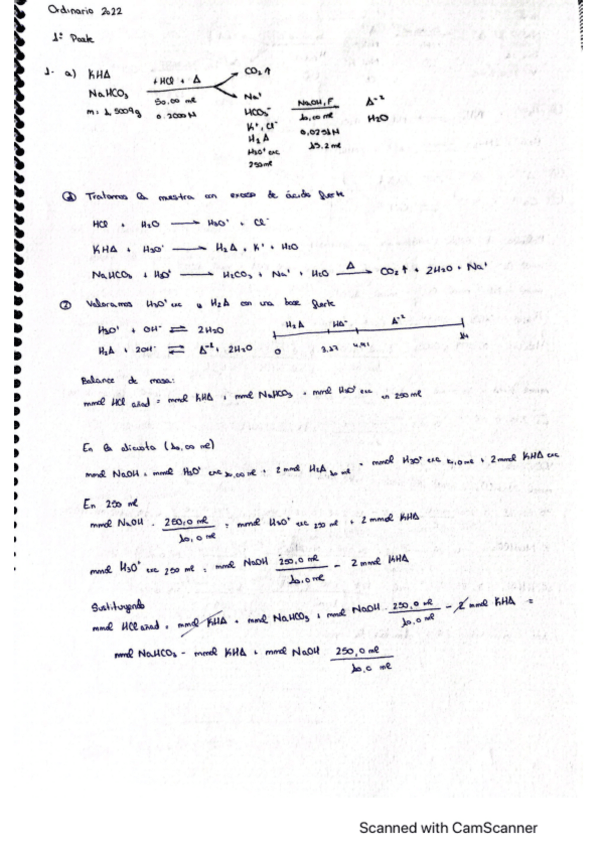 Ordinario 2022
1ª Parte
1- a) KHA
NaHCO3
m: 1,5009g
+ HCl + Δ
50,00 ml
0.2000 N
CO2↑
Na⁺
HCO3⁻
K⁺, Cl⁻
H2A
H3O⁺ exc
250 ml
NaOH, F
10,00 ml
0,0251 N
15.2 ml
A⁻²
H2O
① Tratamos la muestra con exceso de ácido fuerte
HCl + H2O ⟶ H3O⁺ + Cl⁻
KHA + H3O⁺ ⟶ H2A + K⁺ + H2O
NaHCO3 + H3O⁺ ⟶ H2CO3 + Na⁺ + H2O ⟶ Δ CO2↑ + 2H2O + Na⁺
② Valoramos H3O⁺ exc y H2A con una base fuerte
H3O⁺ + OH⁻ ⇌ 2H2O
H2A + 2OH⁻ ⇌ A⁻² + 2H2O
H2A HA⁻ A⁻²
0 14
Balance de masa:
mmol HCl añad = mmol KHA + mmol NaHCO3 + mmol H3O⁺ exc en 250 ml
En la alícuota (10,00 ml)
mmol NaOH = mmol H3O⁺ exc 10,00 ml + 2 mmol H2A 10 ml = mmol H3O⁺ exc 10,0 ml + 2 mmol KHA
En 250 ml
mmol NaOH · 250,0 ml / 10,0 ml = mmol H3O⁺ exc 250 ml + 2 mmol KHA
mmol H3O⁺ exc 250 ml = mmol NaOH 250,0 ml / 10,0 ml - 2 mmol KHA
Sustituyendo
mmol HCl añad = mmol KHA + mmol NaHCO3 + mmol NaOH · 250,0 ml / 10,0 ml - 2 mmol KHA =
mmol NaHCO3 - mmol KHA + mmol NaOH 250,0 ml / 10,0 ml
Scanned with CamScanner